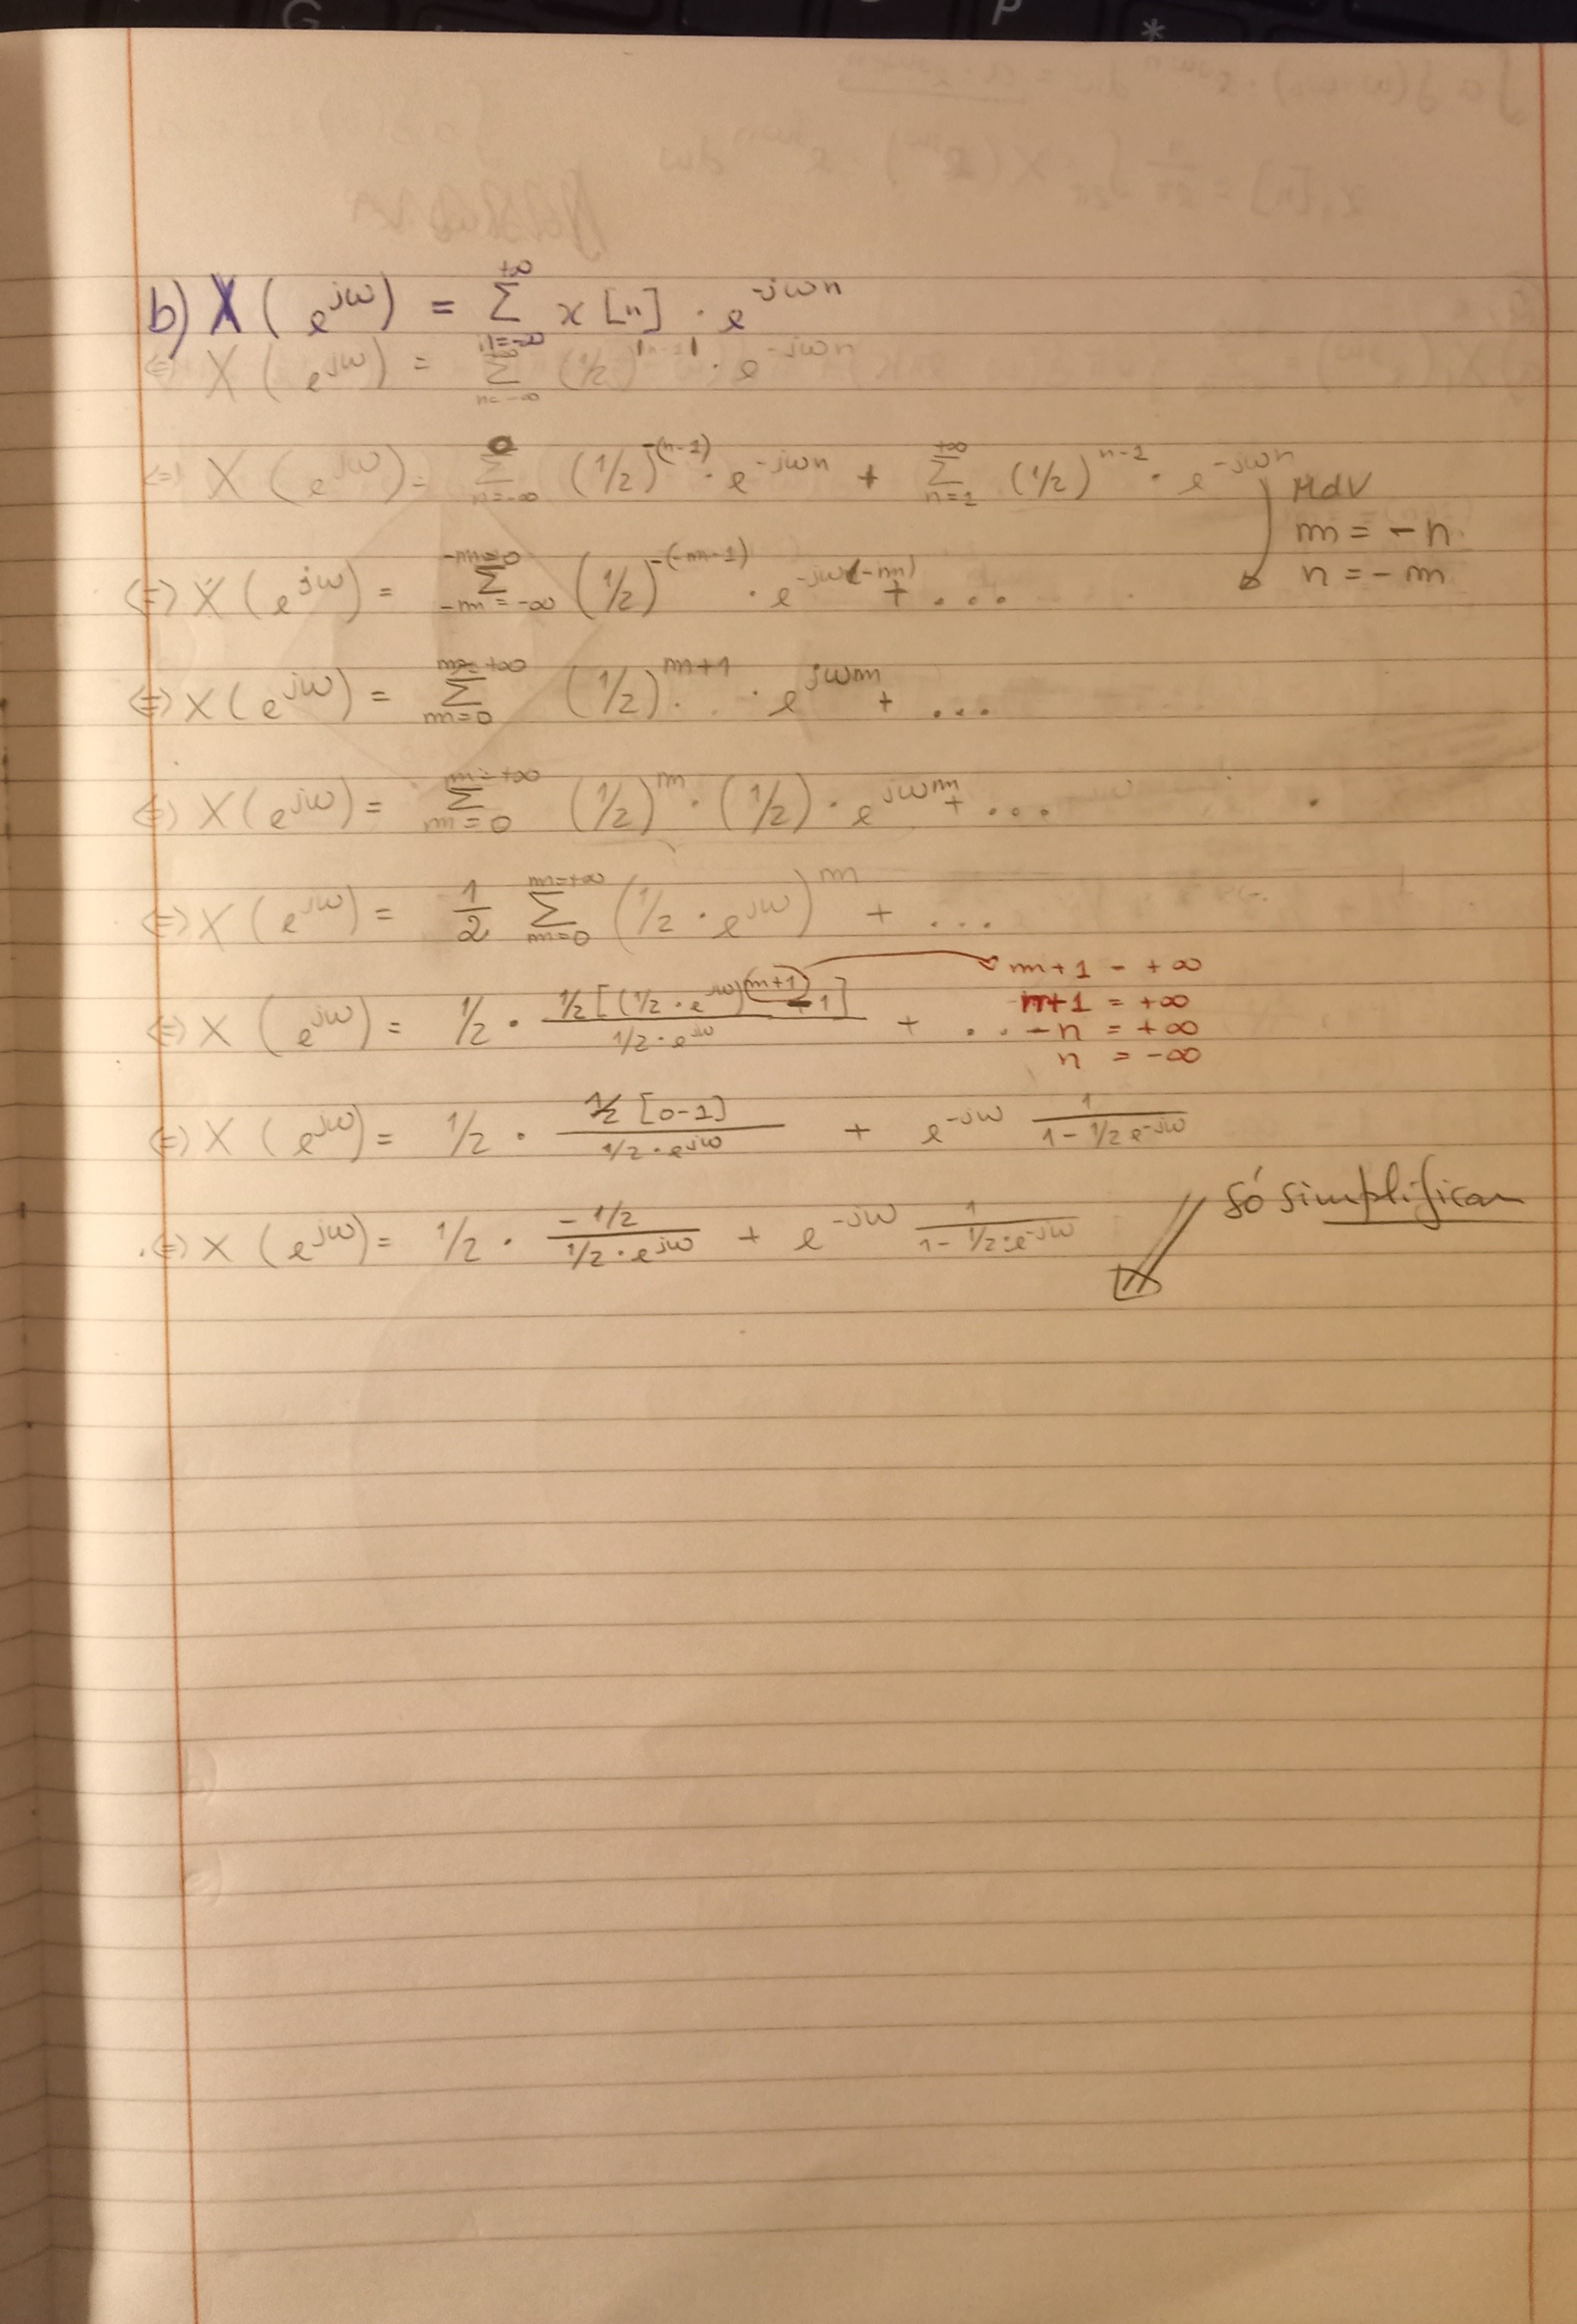 b) X(e^{jω}) = Σ_{n=-∞}^{+∞} x[n] · e^{-jωn}
(=) X(e^{jω}) = Σ_{n=-∞}^{+∞} (1/2)^{|n-1|} · e^{-jωn}
(=) X(e^{jω}) = Σ_{n=-∞}^{0} (1/2)^{-(n-1)} · e^{-jωn} + Σ_{n=1}^{+∞} (1/2)^{n-1} · e^{-jωn}
MdV
m = -n
n = -m
(=) X(e^{jω}) = Σ_{-m=-∞}^{-m=0} (1/2)^{-(-m-1)} · e^{-jω(-m)} + ...
(=) X(e^{jω}) = Σ_{m=0}^{m=+∞} (1/2)^{m+1} · e^{jωm} + ...
(=) X(e^{jω}) = Σ_{m=0}^{m=+∞} (1/2)^m · (1/2) · e^{jωm} + ...
(=) X(e^{jω}) = \frac{1}{2} Σ_{m=0}^{m=+∞} (1/2 · e^{jω})^m + ...
(=) X(e^{jω}) = 1/2 · \frac{1/2 [(1/2 · e^{jω})^{(m+1)} - 1]}{1/2 · e^{jω}} + ...
m+1 = +∞
m+1 = +∞
-n = +∞
n = -∞
(=) X(e^{jω}) = 1/2 · \frac{1/2 [0-1]}{1/2 · e^{jω}} + e^{-jω} \frac{1}{1 - 1/2 e^{-jω}}
(=) X(e^{jω}) = 1/2 · \frac{-1/2}{1/2 · e^{jω}} + e^{-jω} \frac{1}{1 - 1/2 · e^{-jω}}
Só simplificar